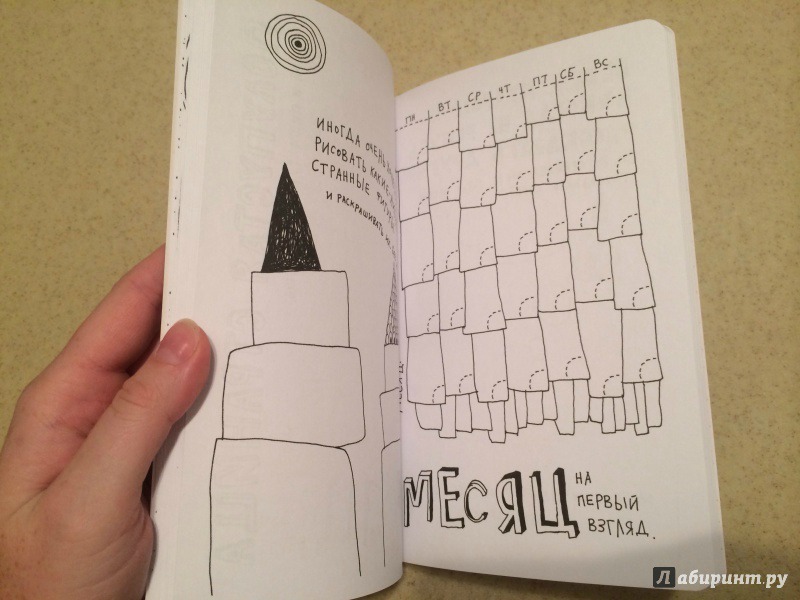 ИНОГДА ОЧЕНЬ
РИСОВАТЬ
СТРАННЫЕ
И РАСКРАШИВАТЬ
ПН ВТ СР ЧТ ПТ СБ ВС
МЕСЯЦ
НА
ПЕРВЫЙ
ВЗГЛЯД.
Лабиринт.ру